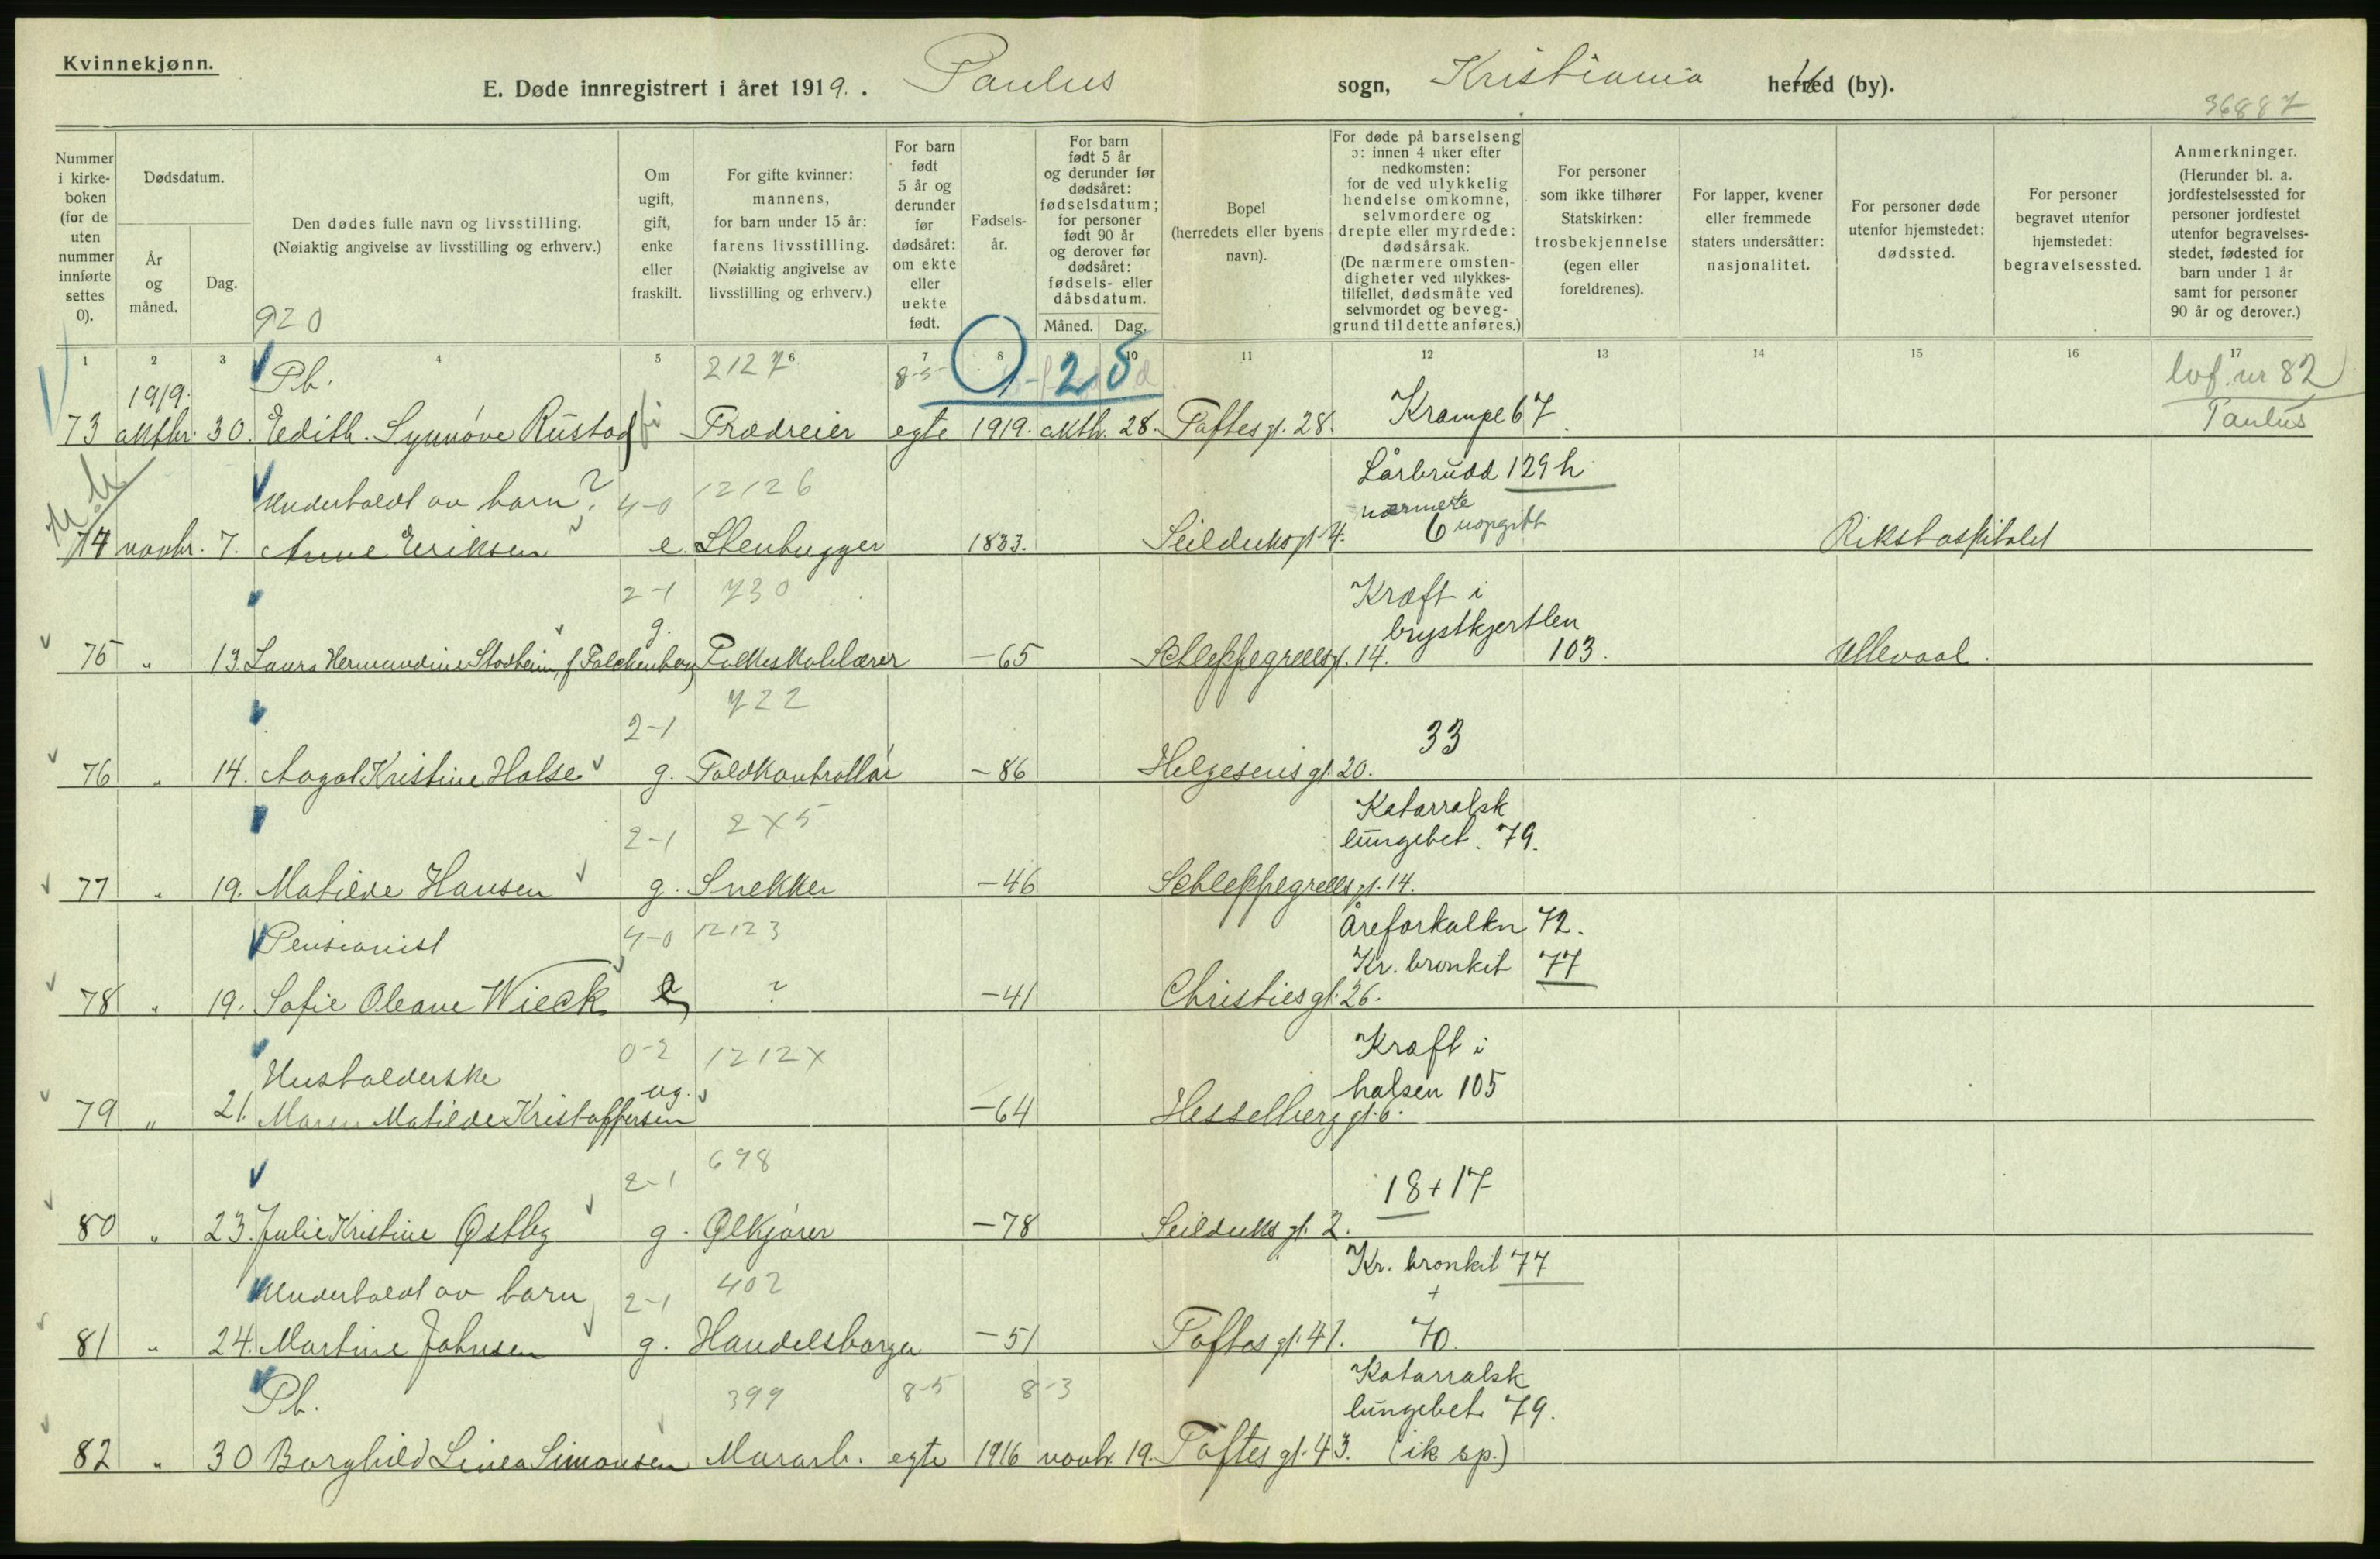 Kvinnekjønn.
E. Døde innregistrert i året 1919. Paulus sogn, Kristiania herred (by).
36887
Nummer i kirke-boken (for de uten nummer innførte settes 0).
Dødsdatum.
År og måned.
Dag.
Den dødes fulle navn og livsstilling.
(Nøiaktig angivelse av livsstilling og erhverv.)
920
Om ugift, gift, enke eller fraskilt.
For gifte kvinner: mannens, for barn under 15 år: farens livsstilling. (Nøiaktig angivelse av livsstilling og erhverv.)
For barn født 5 år og derunder før dødsåret: om ekte eller uekte født.
Fødsels-år.
For barn født 5 år og derunder før dødsåret: fødselsdatum; for personer født 90 år og derover før dødsåret: fødsels- eller dåbsdatum.
Måned. Dag.
Bopel (herredets eller byens navn).
For døde på barselseng ɔ: innen 4 uker efter nedkomsten: for de ved ulykkelig hendelse omkomne, selvmordere og drepte eller myrdede: dødsårsak. (De nærmere omsten-digheter ved ulykkes-tilfellet, dødsmåte ved selvmordet og beveg-grund til dette anføres.)
For personer som ikke tilhører Statskirken: trosbekjennelse (egen eller foreldrenes).
For lapper, kvener eller fremmede staters undersåtter: nasjonalitet.
For personer døde utenfor hjemstedet: dødssted.
For personer begravet utenfor hjemstedet: begravelsessted.
Anmerkninger. (Herunder bl. a. jordfestelsessted for personer jordfestet utenfor begravelses-stedet, fødested for barn under 1 år samt for personer 90 år og derover.)
1 2 3 4 5 6 7 8 9 10 11 12 13 14 15 16 17
1919. Pb. 2127 8-5 25 lvf. nr 82
73 oktbr. 30. Edith Synnöve Rustad Trædreier egte 1919. oktb. 28. Toftes gt. 28. Krampe 67 Paulus
Underholdt av barn? 4-0 12126 Lårbrudd 129h
nærmere
74 novbr. 7. Anne Eriksen e. Stenhugger 1833. Seilduksgt. 4. 6 uopgitt Rikshospitalet
2-1 730 Kræft i
g. brystkjertlen
75 " 13. Laura Hermandine Stosheim, f. Falchenberg Folkeskolelærer -65 Schleppegrellsgt. 14. 103. Ullevaal.
2-1 722
33
76 " 14. Aagot Kristine Halse g. Toldkontrollör -86 Helgesens gt. 20.
2-1 2X5 Katarralsk
lungebet. 79.
77 " 19. Matilde Hansen g. Snekker -46 Schleppegrells gt. 14.
Pensionist 4-0 12123 Åreforkalkn 72.
Kr. bronkit 77
78 " 19. Sofie Oleane Wieck e ? -41 Christies gt. 26.
Husholderske 0-2 1212X Kræft i
ug. halsen 105
79 " 21. Maren Matilde Kristoffersen -64 Hesselberg gt. 6.
2-1 698
18+17
80 " 23. Julie Kristine Østby g. Ølkjörer -78 Seilduks gt. 2.
Underholdt av barn 2-1 402 Kr. bronkit 77
+
81 " 24. Martine Johnsen g. Handelsborger -51 Toftes gt. 41. 70.
Pb. 399 8-5 8-3 Katarralsk
lungebet. 79.
82 " 30 Borghild Linea Simonsen Murarb. egte 1916 novb. 19. Toftes gt. 43. (ik sp.)